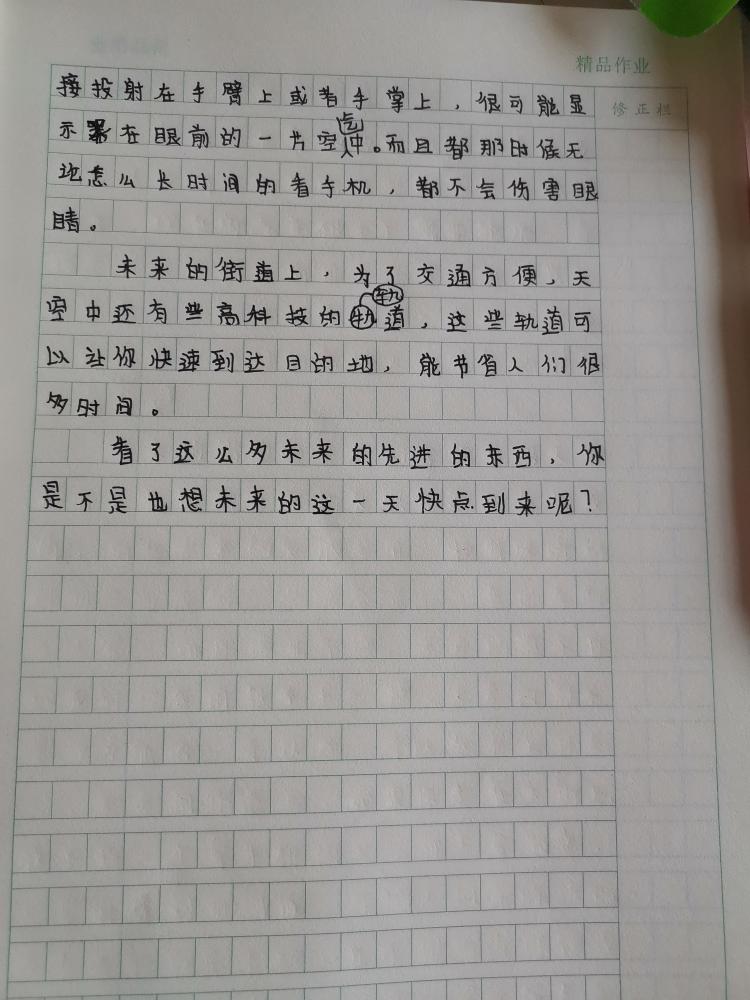 精品作业
修正栏
接投射在手臂上或者手掌上，很可能显
示在眼前的一片空气中。而且都那时候无
论怎么长时间的看手机，都不会伤害眼
睛。
未来的街道上，为了交通方便，天
空中还有些高科技的轨道，这些轨道可
以让你快速到达目的地，能节省人们很
多时间。
看了这么多未来的先进的东西，你
是不是也想未来的这一天快点到来呢？